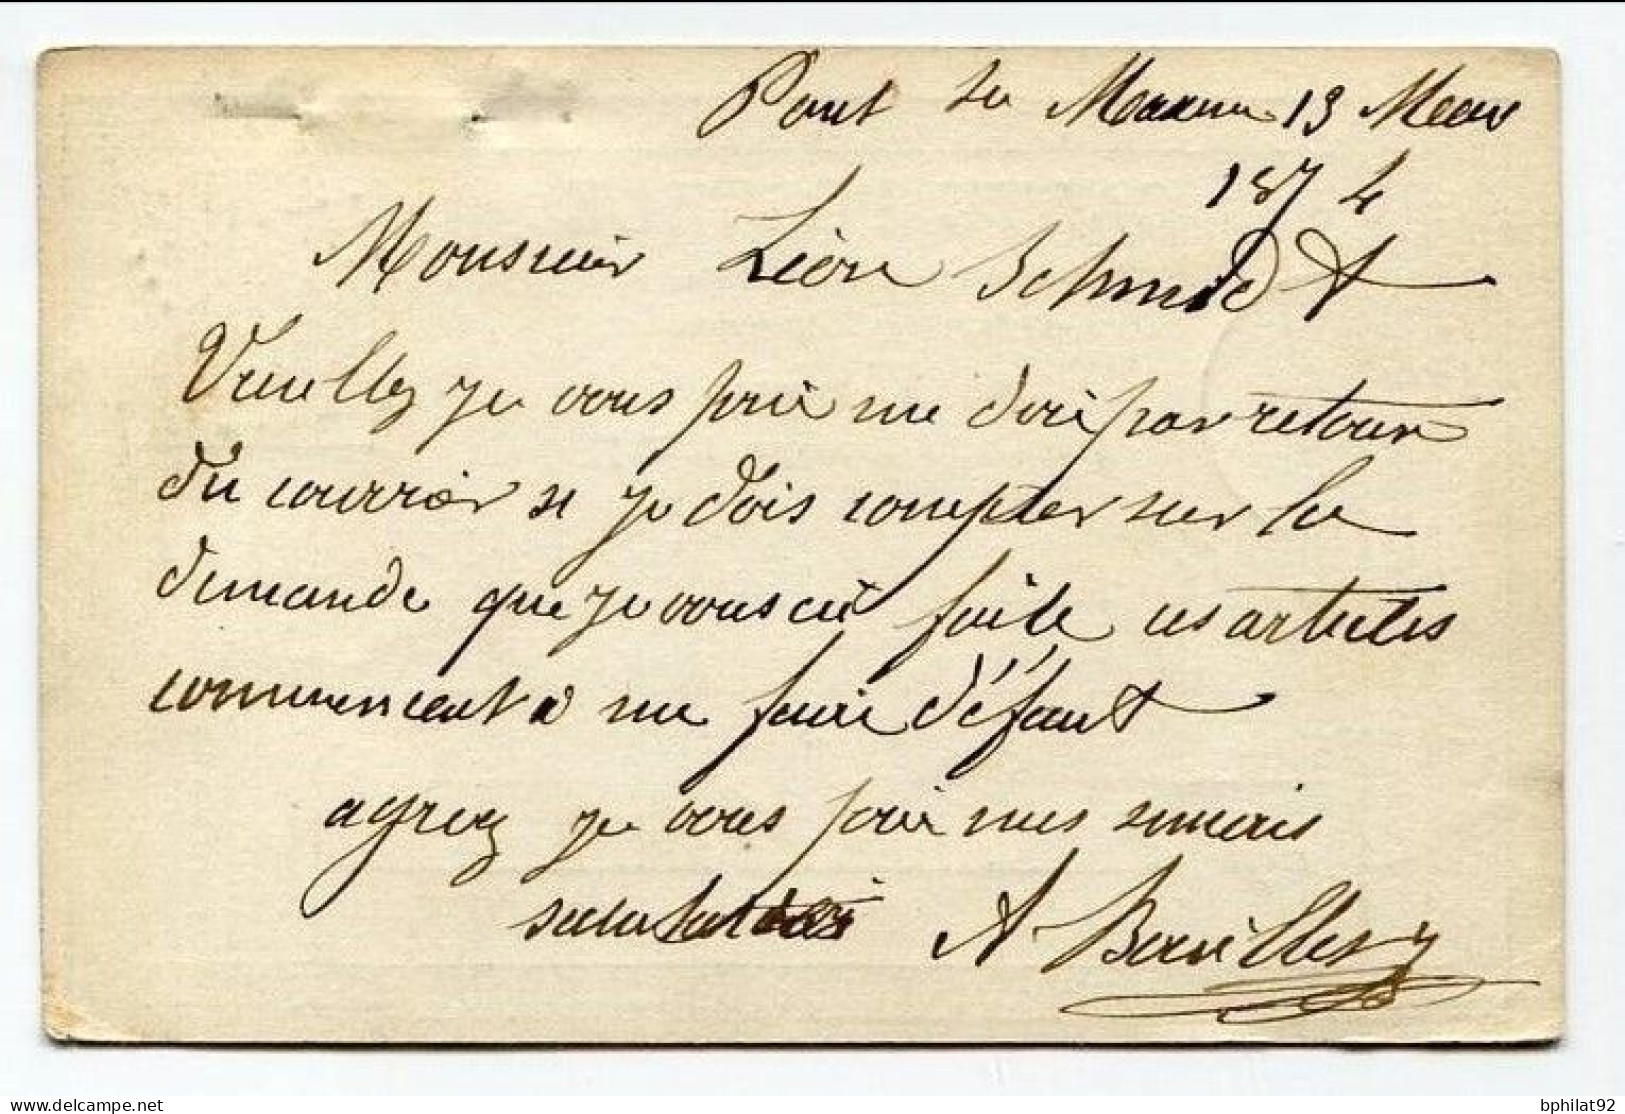 Pont Ste Maxence 13 Mars
1874
Monsieur Léon Schmidt
Veuillez je vous prie me dire par retour
du courrier si je dois compter sur la
demande que je vous ai faite ces articles
commencent à me faire défaut
agreez je vous prie mes sinceris
salutations A Bouillery
bphilat92